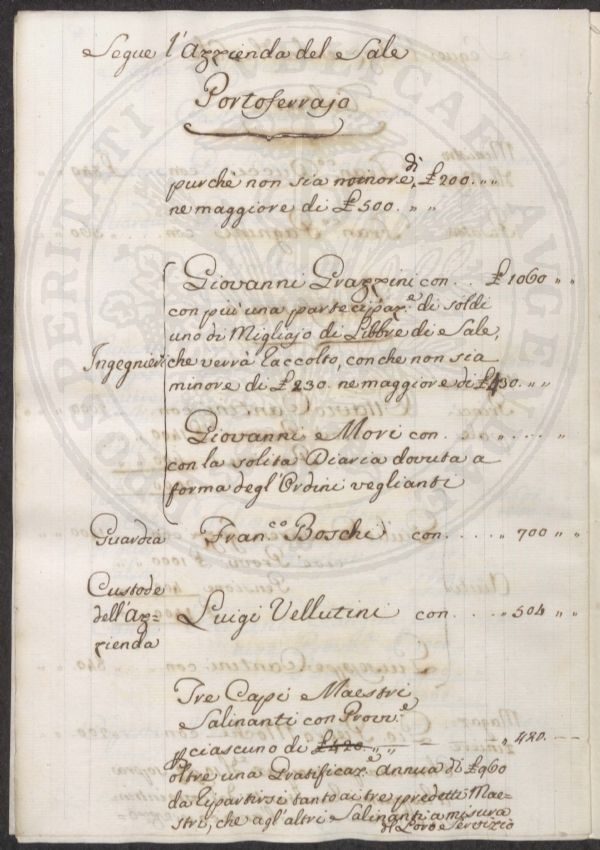 Segue l'Azzienda del Sale
Portoferrajo
purchè non sia minore di £200. „ „
ne maggiore di £500. „ „
Giovanni Grazzini con . . £1060 „ „
con più una partecipaz.e di soldi
uno di Migliajo di Libbre di Sale,
Ingegnieri che verrà raccolto, con che non sia
minore di £230. ne maggiore di £430. „ „
Giovanni Mori con . „ . . . . „
con la solita Diaria dovuta a
forma degl'Ordini veglianti
Guardia Fran.co Boschi con . . . . „ 700 „ „
Custode
dell'Az-
zienda Luigi Vellutini con . . . „ 504 „ „
Tre Capi Maestri
Salinanti con Provv.e
ciascuno di £420. „ „ „ 420. —
oltre una Gratificaz.e Annua di £960
da repartirsi tanto ai tre predetti Mae-
stri, che agl'altri Salinanti a misura
di Loro Servizio